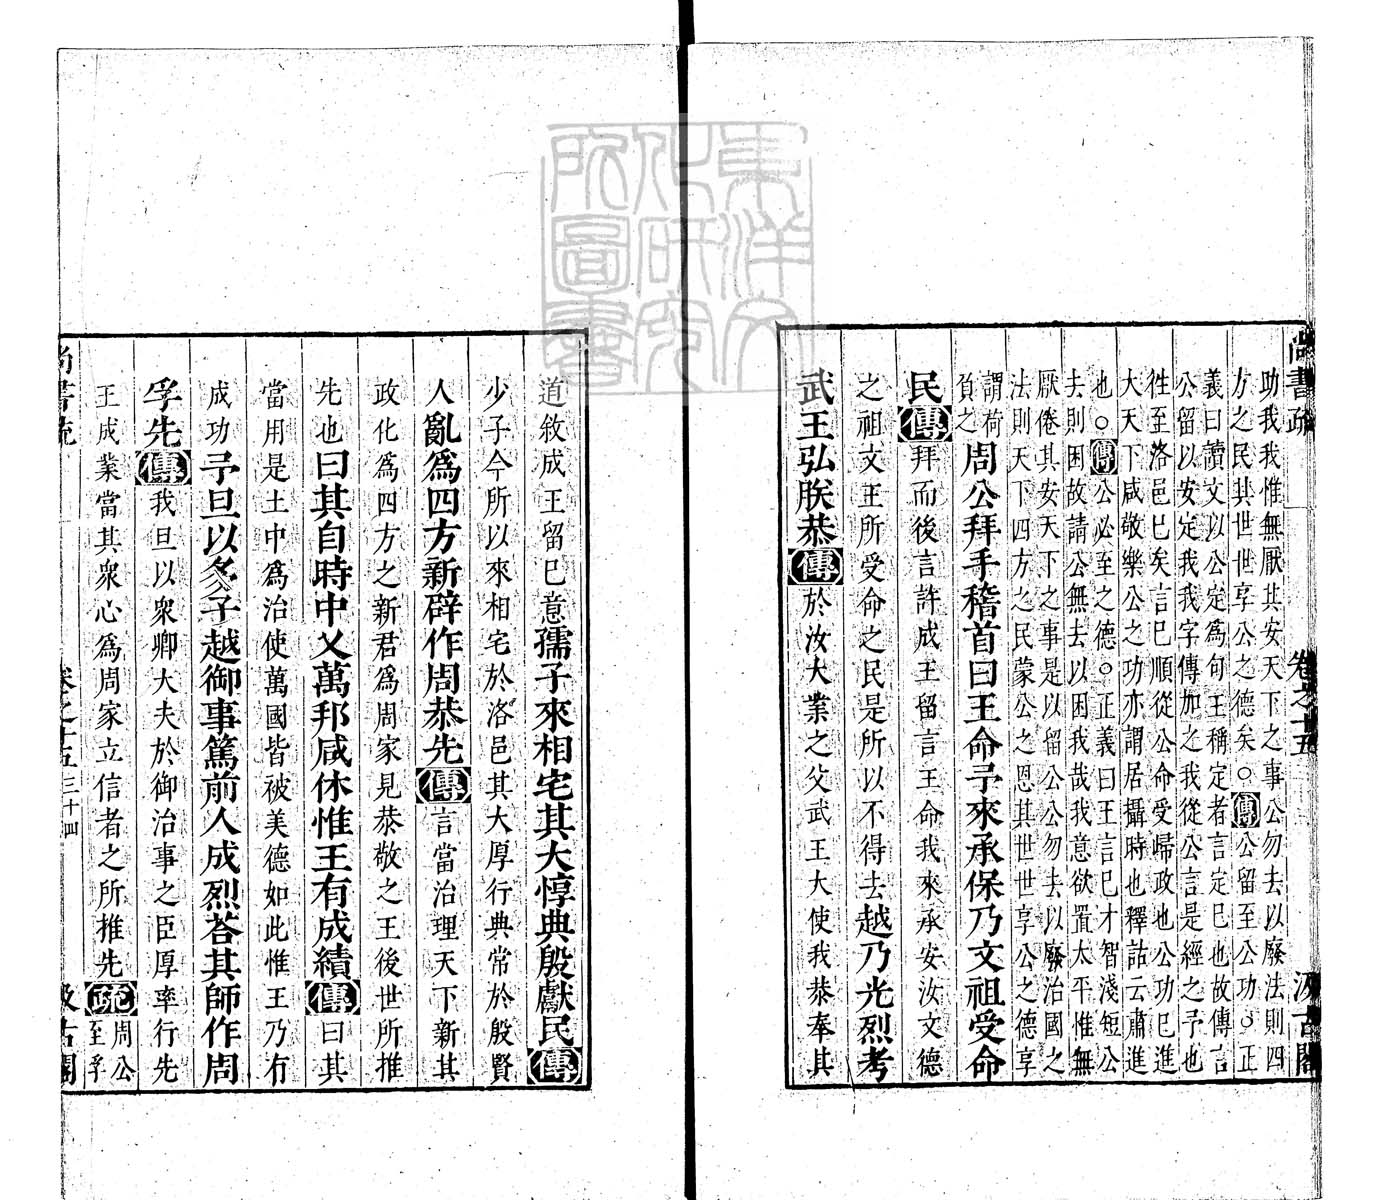 尚書疏 卷之十五 汲古閣
助我我惟無厭其安天下之事公勿去以廢法則四
方之民其世世享公之德矣○傳公留至公功○正
義曰讀文以公定爲句王稱定者言定已也故傳言
公留以安定我我字傳加之我從公言是經之予也
徃至洛邑已矣言已順從公命受歸政也公功已進
大天下咸敬樂公之功亦謂居攝時也釋詁云肅進
也○傳公必至之德○正義曰王言已才智淺短公
去則困故請公無去以困我哉我意欲置太平惟無
厭倦其安天下之事是以留公公勿去以廢治國之
法則天下四方之民蒙公之恩其世世享公之德享
謂荷
負之
周公拜手稽首曰王命予來承保乃文祖受命
民傳拜而後言許成王留言王命我來承安汝文德
之祖文王所受命之民是所以不得去越乃光烈考
武王弘朕恭傳於汝大業之父武王大使我恭奉其
道敘成王留已意孺子來相宅其大惇典殷獻民傳
少子今所以來相宅於洛邑其大厚行典常於殷賢
人亂爲四方新辟作周恭先傳言當治理天下新其
政化爲四方之新君爲周家見恭敬之王後世所推
先也曰其自時中乂萬邦咸休惟王有成績傳曰其
當用是土中爲治使萬國皆被美德如此惟王乃有
成功予旦以多子越御事篤前人成烈荅其師作周
孚先傳我旦以衆卿大夫於御治事之臣厚率行先
王成業當其衆心爲周家立信者之所推先疏周公
至孚
尚書疏 卷之十五 三十四 汲古閣
東洋文
化研究
所圖書